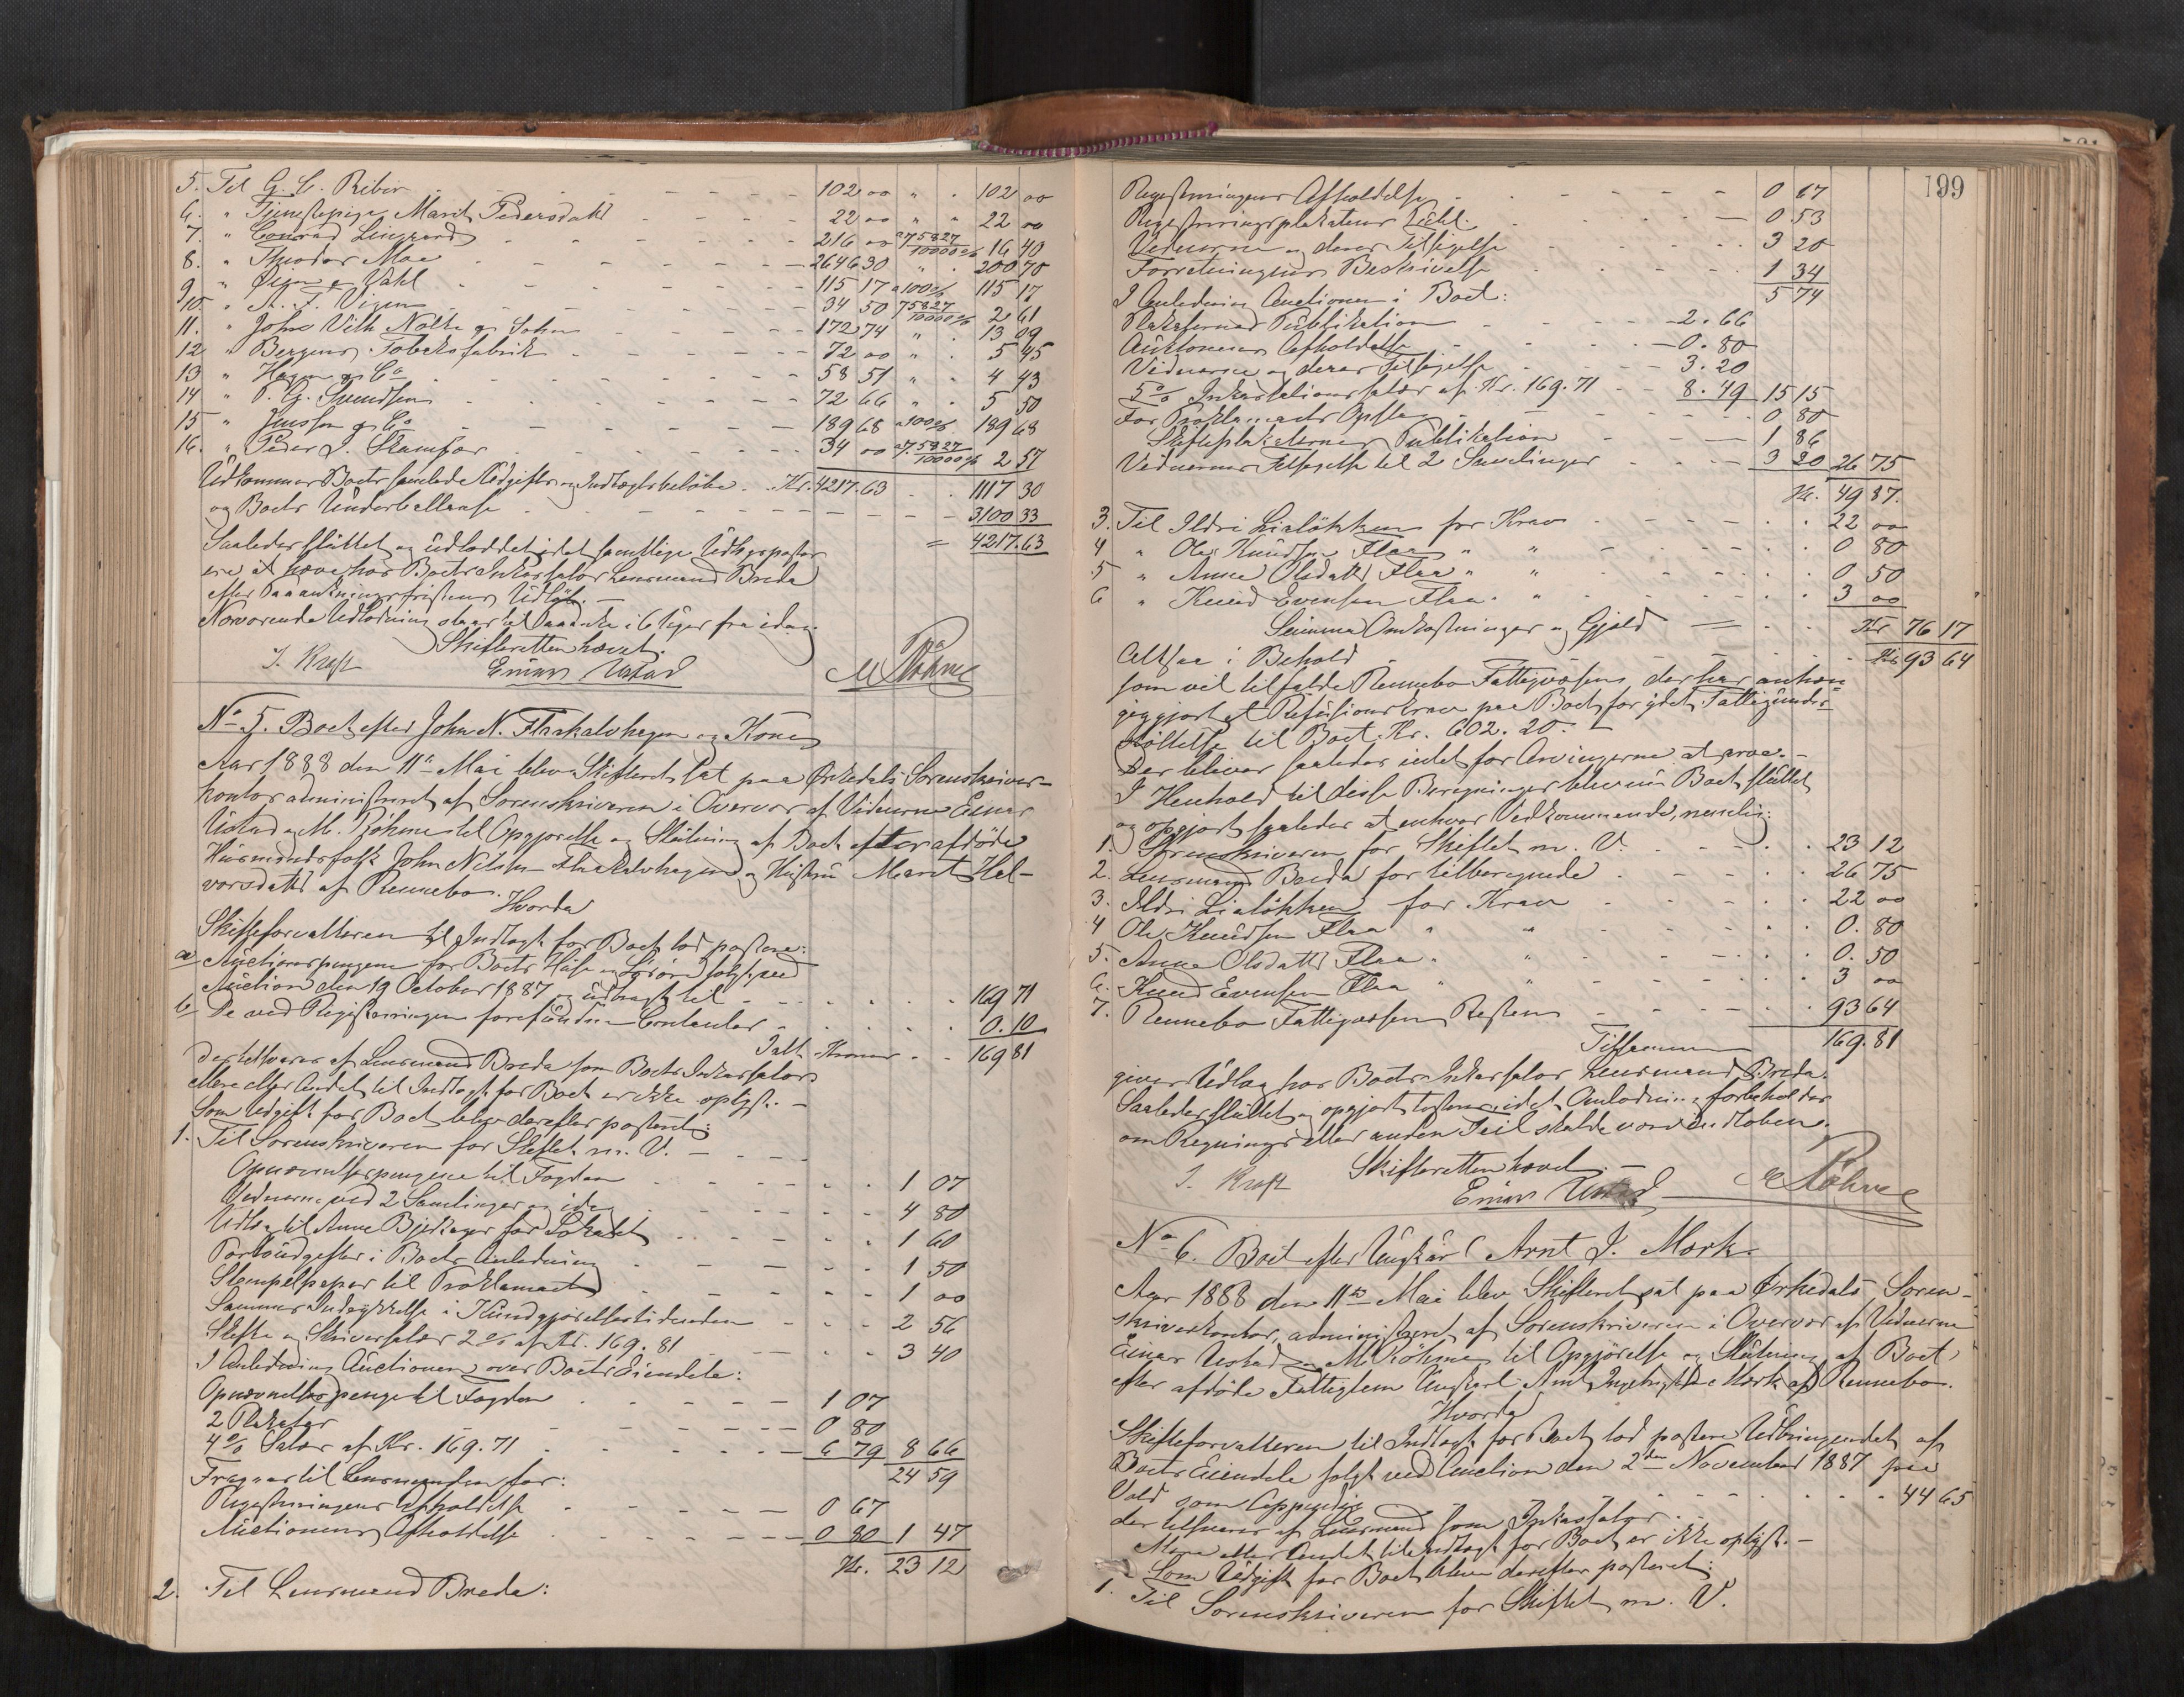 5. Til G. C. Riber 102 00 " . 102 00
6. " Tjenestepige Marit Pedersdatt 22 00 " " 22 00
7. " Conrad Lingaard 216 00 a 7 5827/10000 % 16 40
8. " Theodor Moe 2646 30 " . 200 70
9 " Øien & Wahl 115 17 a 100 % 115 17
10. " A. F. Vigen 34 50 7 5827/10000 % 2 61
11. " Johs Vilh Nolte og Søhn 172 74 " . 13 09
12 " Bergens Tobaksfabrik 72 00 " . 5 45
13 " Hagen & Co 58 51 " . 4 43
14 " P. G. Svendsen 72 66 " . 5 50
15 " Jenssen & Co 189 68 a 100 % 189 68
16. " Peder J. Stamfor 34 00 a 7. 5827/10000 % 2 57
Udkommer Boets samlede Udgifts og Indtægtsbeløbe . . Kr. 4217.63 . . 1117 30
og Boets Underballanse 3100 33
Saaledes sluttet og udloddet idet samtlige Udlægsposter = 4217.63
ere at hæve hos Boets Inkassator Lensmand Breda
efter Paaankningsfristens Udløb. —
Nærværende Udlodning staar til Paaanke i 6 Uger fra idag.
Skifteretten hævet.
J. Kraft Einar Ustad M Röhme
No 5. Boet efter John N. Flaakalvhagen og Kone
Aar 1888 den 11te Mai blev Skifteret sat paa Ørkedals Sorenskriver-
kontor administreret af Sorenskriveren i Overvær af Vidnerne Einar
Ustad og M. Röhme til Opgjørelse og Slutning af Boet efter afdøde
Husmandsfolk John Nilsen Flaakalvhagen og Hustru Marit Hal-
vorsdatt af Rennebo. Hvorda
Skifteforvalteren til Indtægt for Boet lod postere:
a Auctionspengene for Boets Huse og Løsøre solgt ved
Auction den 19 October 1887 og udbragt til 169 71
b De ved Registreringen forefundne Contanter 0.10
Ialt Kroner . . 169 81
der tilsvares af Lensmand Breda som Boets Inkassator
Mere eller Andet til Indtægt for Boet er ikke oplyst. —
Som Udgift for Boet blev derefter posteret:
1. Til Sorenskriveren for Skiftet m. V.
Opnævnelsespengene til Fogden 1 07
Vidnerne ved 2 Samlinger og idag 4 80
Udlæg til Anne Bjerkager for Lokalet 1 60
Portoudgifter i Boets Anledning 1 50
Stempelpapir til Proklamaet 1 00
Sammes Indrykkelse i Kundgjørelsestidenden 2 56
Skifte og Skriversalær 2 % af Kr. 169.81 3 40
I Anledning Auctionen over Boets Eiendele:
Opnævnelsespenge til Fogden 1 07
2 Plakater 0 80
4 % Salær af Kr. 169.71 6 79 8 66
Fragaar til Lensmanden for: 24 59
Registreringens Afholdelse 0 67
Auctionens Afholdelse 0 80 1 47
Kr. 23 12
2. Til Lensmand Breda:
199
Registreringens Afholdelse 0 67
Registreringsplakatens 0 53
Vidnerne og deres Tilsigelse 3 20
Forretningens Beskrivelse 1 34
I Anledning Auctionen i Boet: 5 74
Plakaternes Publikation 2.66
Auktionens Afholdelse 0.80
Vidnerne og deres Tilsigelse 3.20
5 % Inkassationssalær af Kr. 169.71 8.49 15 15
For Proklamaets Opslag 0 80
Skifteplakaternes Publikation 1 86
Vidnernes Tilsigelse til 2 Samlinger 3 20 26 75
Kr. 49 87.
3. Til Ildri Lialökken for Krav 22 00
4 " Ole Knudsen Flaa " " 0 80
5 " Anne Olsdatt Flaa " " 0 50
6 " Knud Evensen Flaa " " 3 00
Summa Omkostninger og Gjæld Kr 76 17
Altsaa i Behold Kr. 93 64
som vil tilfalde Rennebo Fattigvæsen, der har anhæn-
giggjort et Refusionskrav paa Boet for ydet Fattigunder-
støttelse til Boet. Kr. 602.20. —
Der bliver saaledes intet for Arvingerne at arve. —
I Henhold til disse Beregninger blev nu Boet sluttet
og opgjort saaledes at enhver Vedkommende, nemlig:
1. Sorenskriveren for Skiftet m. V. 23 12
2. Lensmand Breda for tilberegnede 26 75
3. Ildri Lialökken for Krav 22 00
4 Ole Knudsen Flaa " " 0.80
5. Anne Olsdatt Flaa " " 0.50
6. Knud Evensen Flaa " " 3 00
7. Rennebo Fattigvæsen Resten 93 64
Tilsammen 169.81
giver Udlæg hos Boets Inkassator Lensmand Breda.
Saaledes sluttet og opgjort Testerer idet Anlodning forbeholdes
om Regnings eller anden Feil skulde være indløben.
Skifteretten hævet. —
J. Kraft Einar Ustad M Röhme
No 6. Boet efter Ungkarl Arnt I. Mærk.
Aar 1888 den 11te Mai blev Skifteret sat paa Ørkedals Soren-
skriverkontor, administreret af Sorenskriveren i Overvær af Vidnerne
Einar Ustad og M. Röhme til Opgjørelse og Slutning af Boet
efter afdøde Fattiglem Ungkarl Arnt Ingebrigtsen Mærk af Rennebo.
Hvorda
Skifteforvalteren til Indtægt for Boet lod postere Udbringendet af
Boets Eiendele solgt ved Auction den 2den November 1887 paa
Vold som Appendix 44 65
der tilsvares af Lensmand som Inkassator.
Mere eller Andet til Indtægt for Boet er ikke oplyst. —
Som Udgift for Boet blev derefter posteret:
1. Til Sorenskriveren for Skiftet m. V.